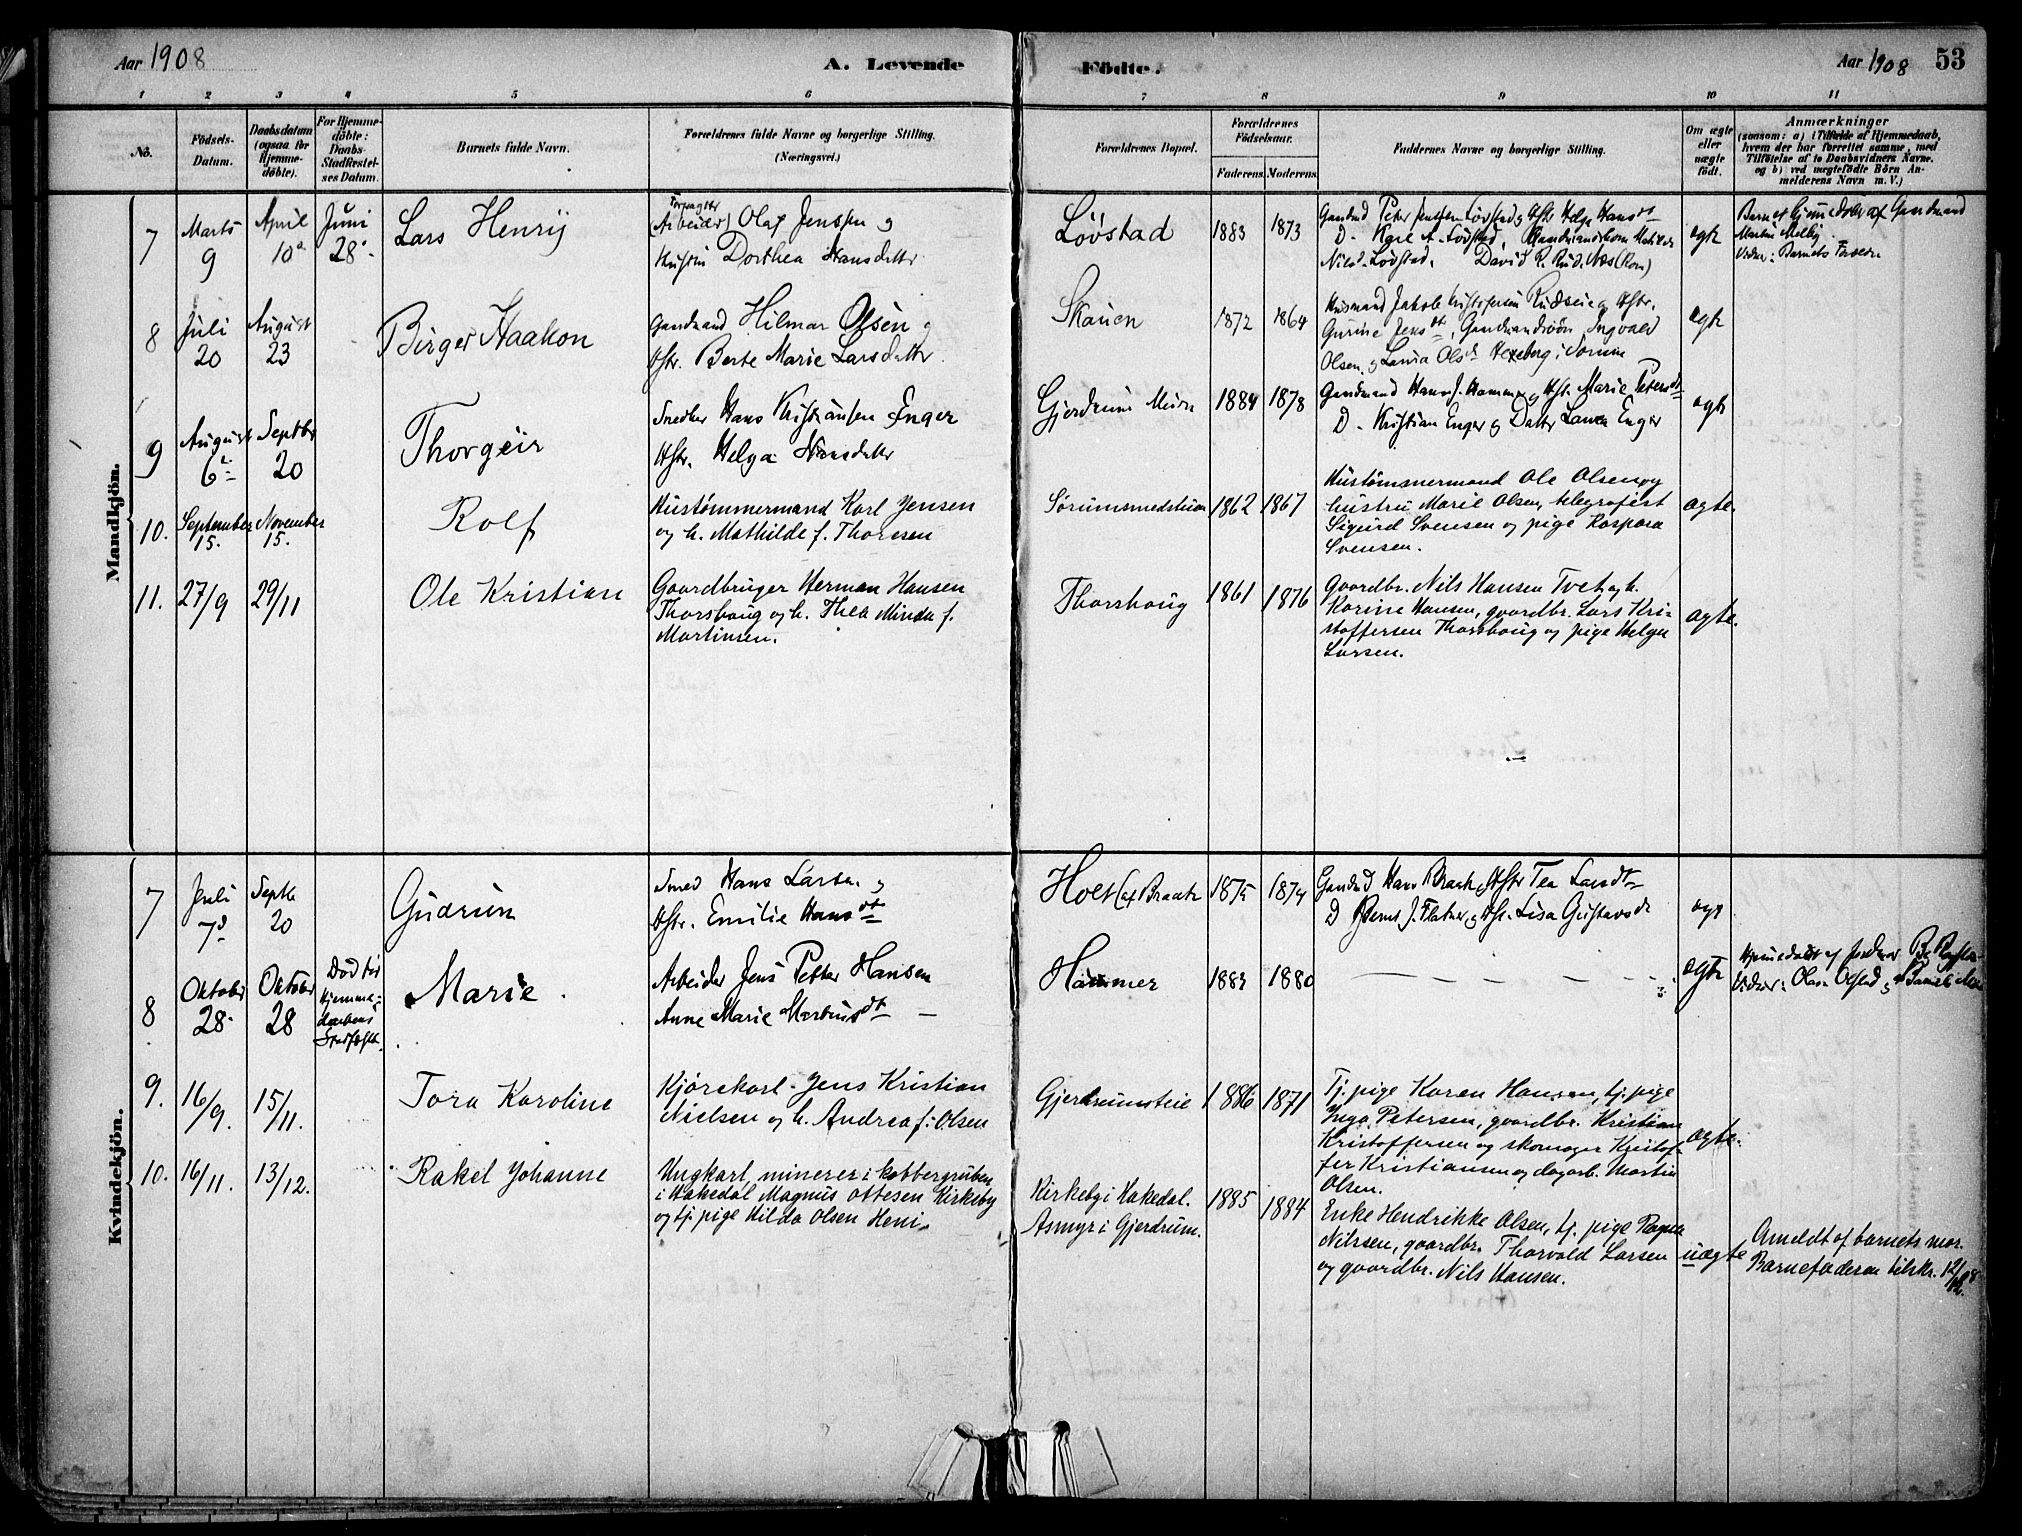 Aar 1908
A. Levende
Födte.
Aar 1908
53
1 2 3 4 5 6 7 8 9 10 11
No.
Födsels-
Datum.
Daabsdatum
(ogsaa for
Hjemme-
döbte).
For Hjemme-
döbte:
Daabs-
Stadfæstel-
ses Datum.
Barnets fulde Navn.
Forældrenes fulde Navne og borgerlige Stilling.
(Næringsvei.)
Forældrenes Bopæl.
Forældrenes
Födselsaar.
Faderens. Moderens.
Faddernes Navne og borgerlige Stilling.
Om ægte
eller
uægte
födt.
Anmærkninger
(saasom: a) i Tilfælde af Hjemmedaab,
hvem der har forrettet samme, med
Tilföielse af to Daabsvidners Navne.
og b) ved uægtefödte Börn An-
melderens Navn m. V.)
Mandkjön.
7
Marts
9
April
10
Juni
28
Lars Henrij
(Arbeider) Olaf Jenssen og
Hustru Dorthea Hansdatter
Lövstad
1883
1873
Peter Jenssen Lövstad og Hstr Helga Hansdt
D. Kare A. Lövstad,
Nilsd. Lövstad. David R. Rud. Næs (Rom)
ægte
Barnet Hjemmedøbt af Gaardmand
Martin Melby
Vidner: Barnets Forældre
8
Juli
20
August
23
Birger Haakon
Gaardmand Hilmar Olsen og
Hstr. Berte Marie Larsdatter
Skauen
1872
1864
Husmand Jakob Kristofersen Rudseie og Hstr.
Gurine Jensdt, Gaardmandssön Ingvald
Olsen og Laura Olsdt Hexeberg i Sörum
ægte
9
August
6
Septbr
20
Thorgeir
Snedker Hans Kristiansen Enger
Hstr. Helga Hansdatter
Gjerdrum Meieri
1884
1878
Gaardmand Hans J. Hammer og Hstr. Marie Petersdt
D. Kristian Enger og Datter Laura Enger
ægte
10.
September
15.
November
15.
Rolf
Hustømmermand Karl Jensen
og h. Mathilde f. Thoresen
Sørumsmedstuen
1862
1867
Hustømmermand Ole Olsen og
hustru Marie Olsen, telegrafist
Sigurd Svensen og pige Kaspara
Svensen.
ægte.
11.
27/9
29/11
Ole Kristian
Gaardbruger Herman Hansen
Thorshaug og h. Thea Minda f.
Martinsen.
Thorshaug
1861
1876
Gaardbr. Nils Hansen Tvet og h.
Karine Hansen, gaardbr. Lars Kri-
stoffersen Thorshaug og pige Helga
Larsen.
ægte.
Kvindekjön.
7
Juli
7
Septb
20
Gudrun
Smed Hans Larsen og
Hstr. Emilie Hansdt
Holt (af Braate
1875
1874
Hans Braate og Hstr Tea Larsdt
D Bernt J. Flatner og Hstr. Lisa Gustavsdt
ægte
8
Oktober
28
Oktober
28
Död för
Hjemme-
daabens
Stadfæstelse.
Marie
Arbeider Jens Petter Hansen
Anne Marie Martinsdt
Hammer
1883
1880
ægte
Hjemmedöbt af Jordmor
Vidner: Olava Olstad og
9.
16/9.
15/11.
Tora Karoline
Kjørekarl Jens Kristian
Nielsen og h. Andrea f: Olsen
Gjerdrumsteie
1886
1871
Tj. pige Karen Hansen, tj. pige
Inga Petersen, gaardbr. Kristian
Kristoffersen og skomager Kristof-
fer Kristiansen og dagarb. Martin
Olsen.
ægte.
10.
16/11.
13/12.
Rakel Johanne
Ungkarl, minerer i kobbergruben
i Hakedal Magnus Ottesen Kirkeby
og tj. pige Hilda Olsen Heni.
Kirkeby i Hakedal.
Asmyr i Gjerdrum.
1885
1884
Enke Hendrikke Olsen, tj. pige Ragna
Nilssen, gaardbr. Thorvald Larsen
og gaardbr. Nils Hansen.
uægte
Anmeldt af barnets mor.
Barnefaderen tilskr. 12/12 08